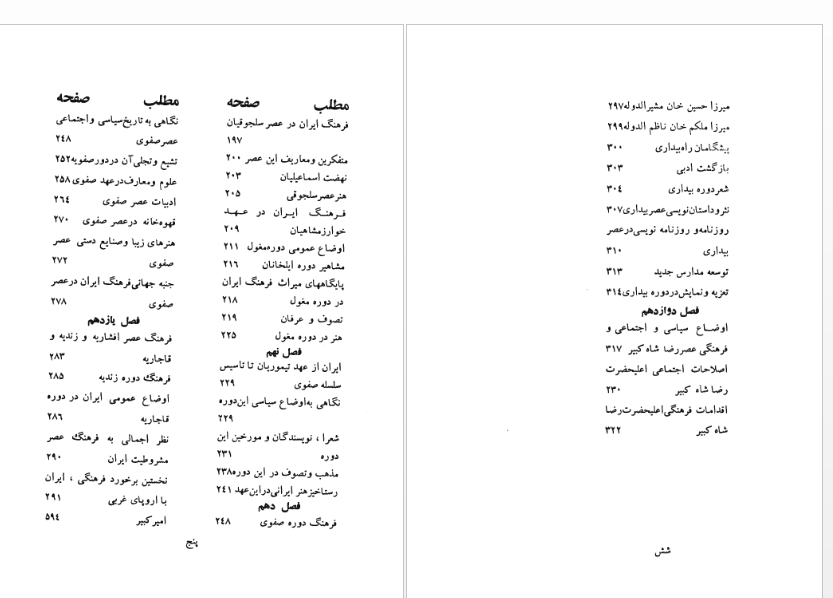 مطلب صفحه
فرهنگ ایران در عصر سلجوقیان
۱۹۷
متفکرین ومعاریف این عصر ۲۰۰
نهضت اسماعیلیان ۲۰۳
هنرعصرسلجوقی ۲۰۵
فرهنگ ایران در عهد
خوارزمشاهیان ۲۰۹
اوضاع عمومی دوره‌مغول ۲۱۱
مشاهیر دوره ایلخانان ۲۱۶
پایگاههای میراث فرهنگ ایران
در دوره مغول ۲۱۸
تصوف و عرفان ۲۱۹
هنر در دوره مغول ۲۲۵
فصل نهم
ایران از عهد تیموریان تا تاسیس
سلسله صفوی ۲۲۹
نگاهی به‌اوضاع سیاسی این‌دوره
۲۲۹
شعرا ، نویسندگان و مورخین این
دوره ۲۳۱
مذهب وتصوف در این دوره۲۳۸
رستاخیزهنر ایرانی‌دراین‌عهد ۲٤۱
فصل دهم
فرهنگ دوره صفوی ۲٤۸
مطلب صفحه
نگاهی به تاریخ‌سیاسی واجتماعی
عصرصفوی ۲٤۸
تشیع وتجلی‌آن دردورصفویه۲۵۲
علوم ومعارف‌درعهد صفوی۲۵۸
ادبیات عصر صفوی ۲٦٤
قهوه‌خانه درعصر صفوی ۲۷۰
هنرهای زیبا وصنایع دستی عصر
صفوی ۲۷۲
جنبه جهانی‌فرهنگ ایران درعصر
صفوی ۲۷۸
فصل یازدهم
فرهنگ عصر افشاریه و زندیه و
قاجاریه ۲۸۳
فرهنگ دوره زندیه ۲۸۵
اوضاع عمومی ایران در دوره
قاجاریه ۲۸٦
نظر اجمالی به فرهنگ عصر
مشروطیت ایران ۲۹۰
نخستین برخورد فرهنگی ، ایران
با اروپای غربی ۲۹۱
امیرکبیر ۵۹٤
پنج
میرزا حسین خان مشیرالدوله۲۹۷
میرزا ملکم خان ناظم الدوله۲۹۹
پیشگامان راه‌بیداری ۳۰۰
بازگشت ادبی ۳۰۳
شعردوره بیداری ۳۰٤
نثروداستان‌نویسی‌عصربیداری۳۰۷
روزنامه‌و روزنامه نویسی‌درعصر
بیداری ۳۱۰
توسعه مدارس جدید ۳۱۳
تعزیه ونمایش‌دردوره بیداری۳۱٤
فصل دوازدهم
اوضاع سیاسی و اجتماعی و
فرهنگی عصررضا شاه کبیر ۳۱۷
اصلاحات اجتماعی اعلیحضرت
رضا شاه کبیر ۲۳۰
اقدامات فرهنگی‌اعلیحضرت‌رضا
شاه کبیر ۳۲۲
شش